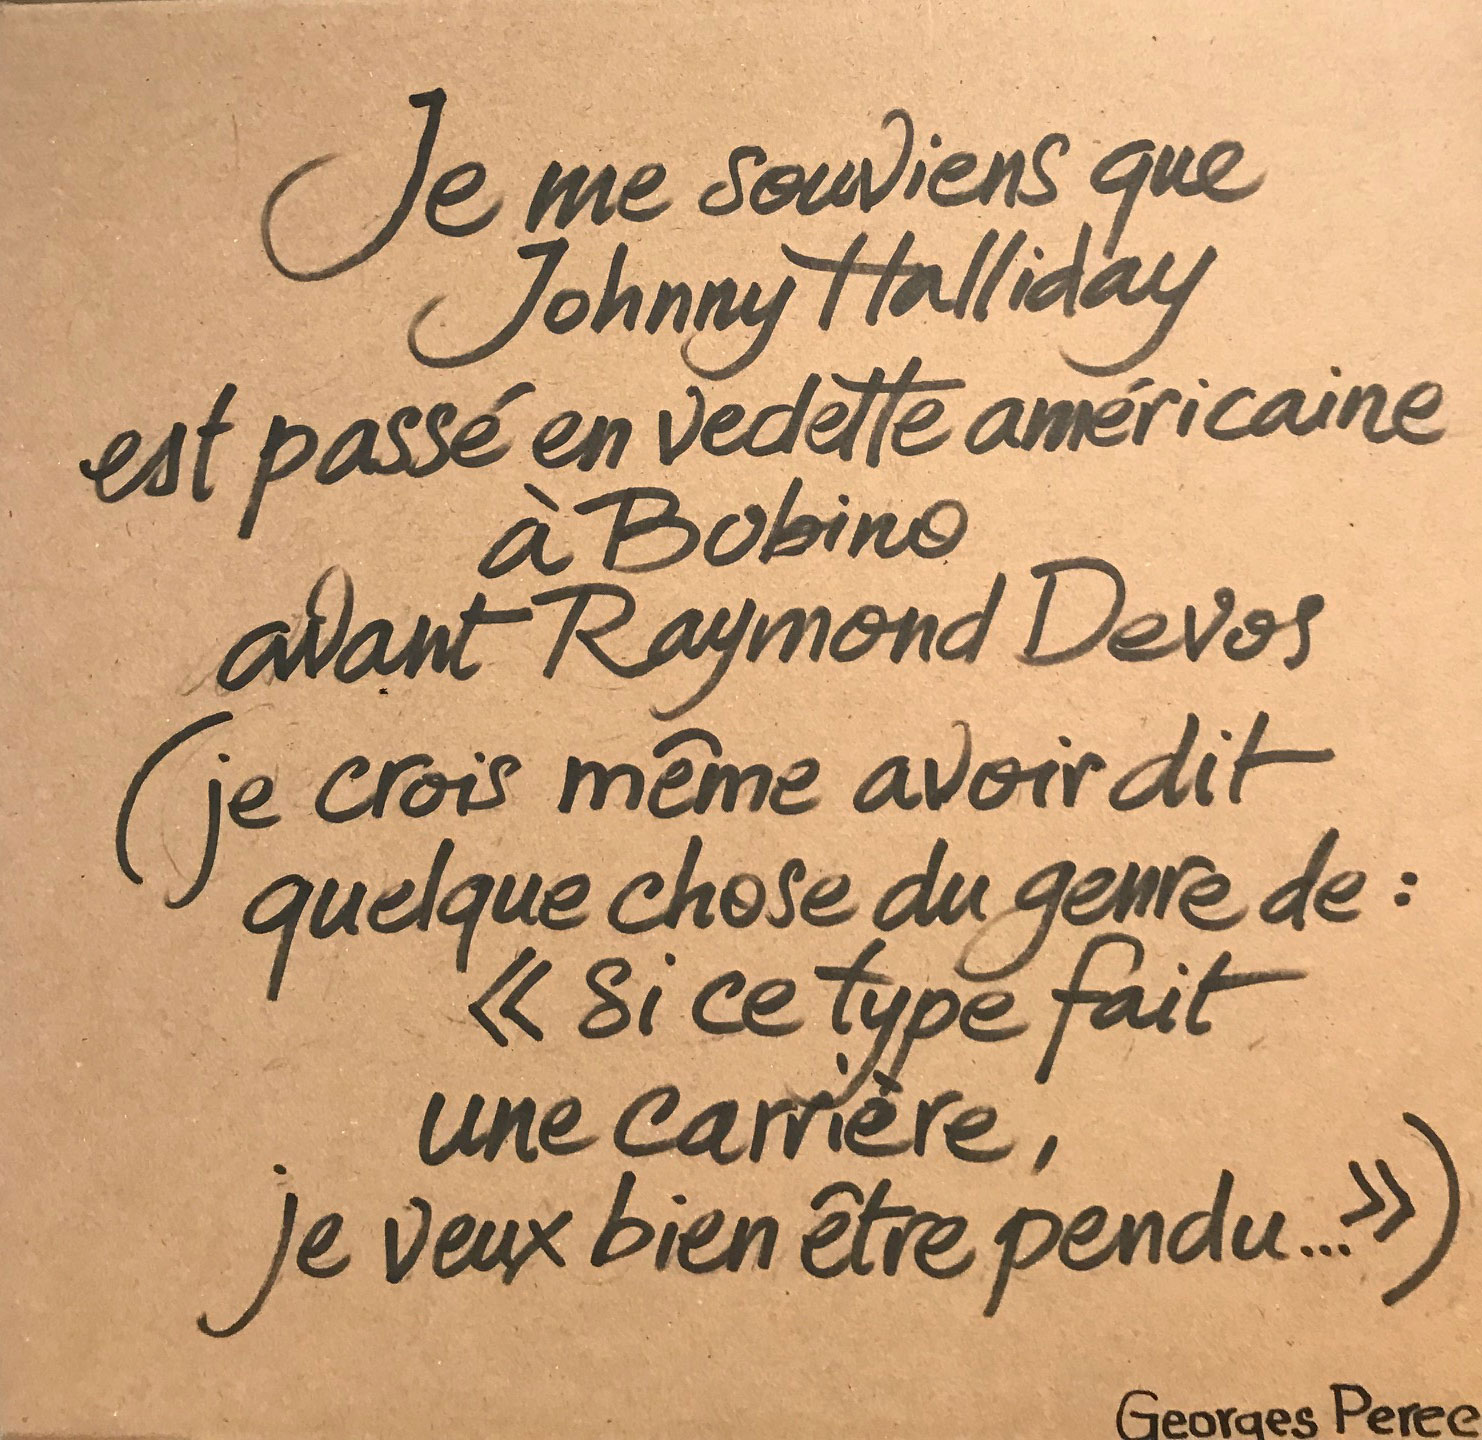 Je me souviens que
Johnny Halliday
est passé en vedette américaine
à Bobino
avant Raymond Devos
(je crois même avoir dit
quelque chose du genre de :
« Si ce type fait
une carrière,
je veux bien être pendu... »)
Georges Perec